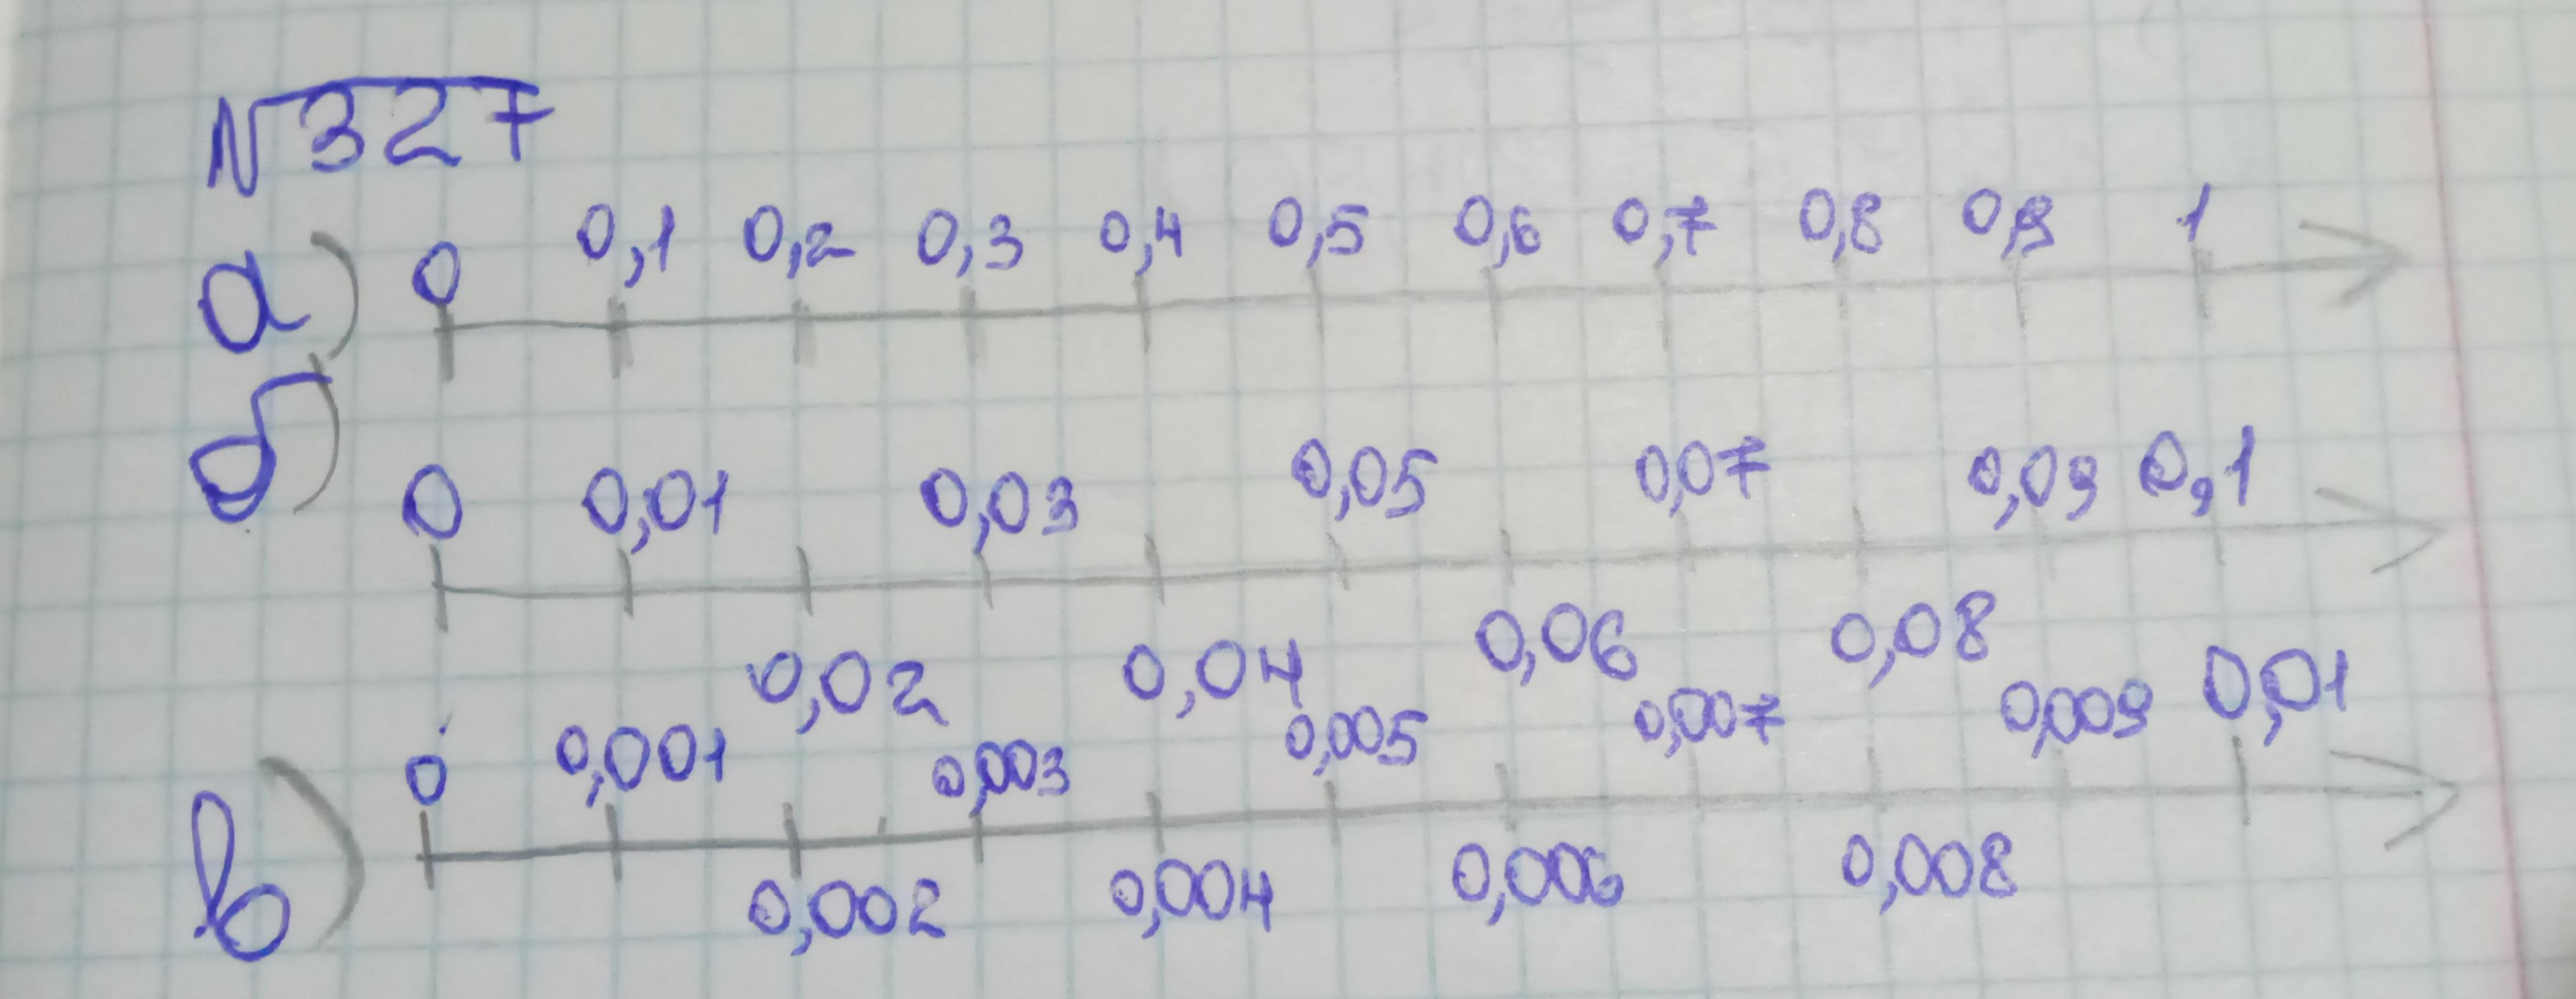 N327
а) 0 0,1 0,2 0,3 0,4 0,5 0,6 0,7 0,8 0,9 1
б) 0 0,01 0,03 0,05 0,07 0,09 0,1
0,02 0,04 0,06 0,08
в) 0 0,001 0,003 0,005 0,007 0,009 0,01
0,002 0,004 0,006 0,008